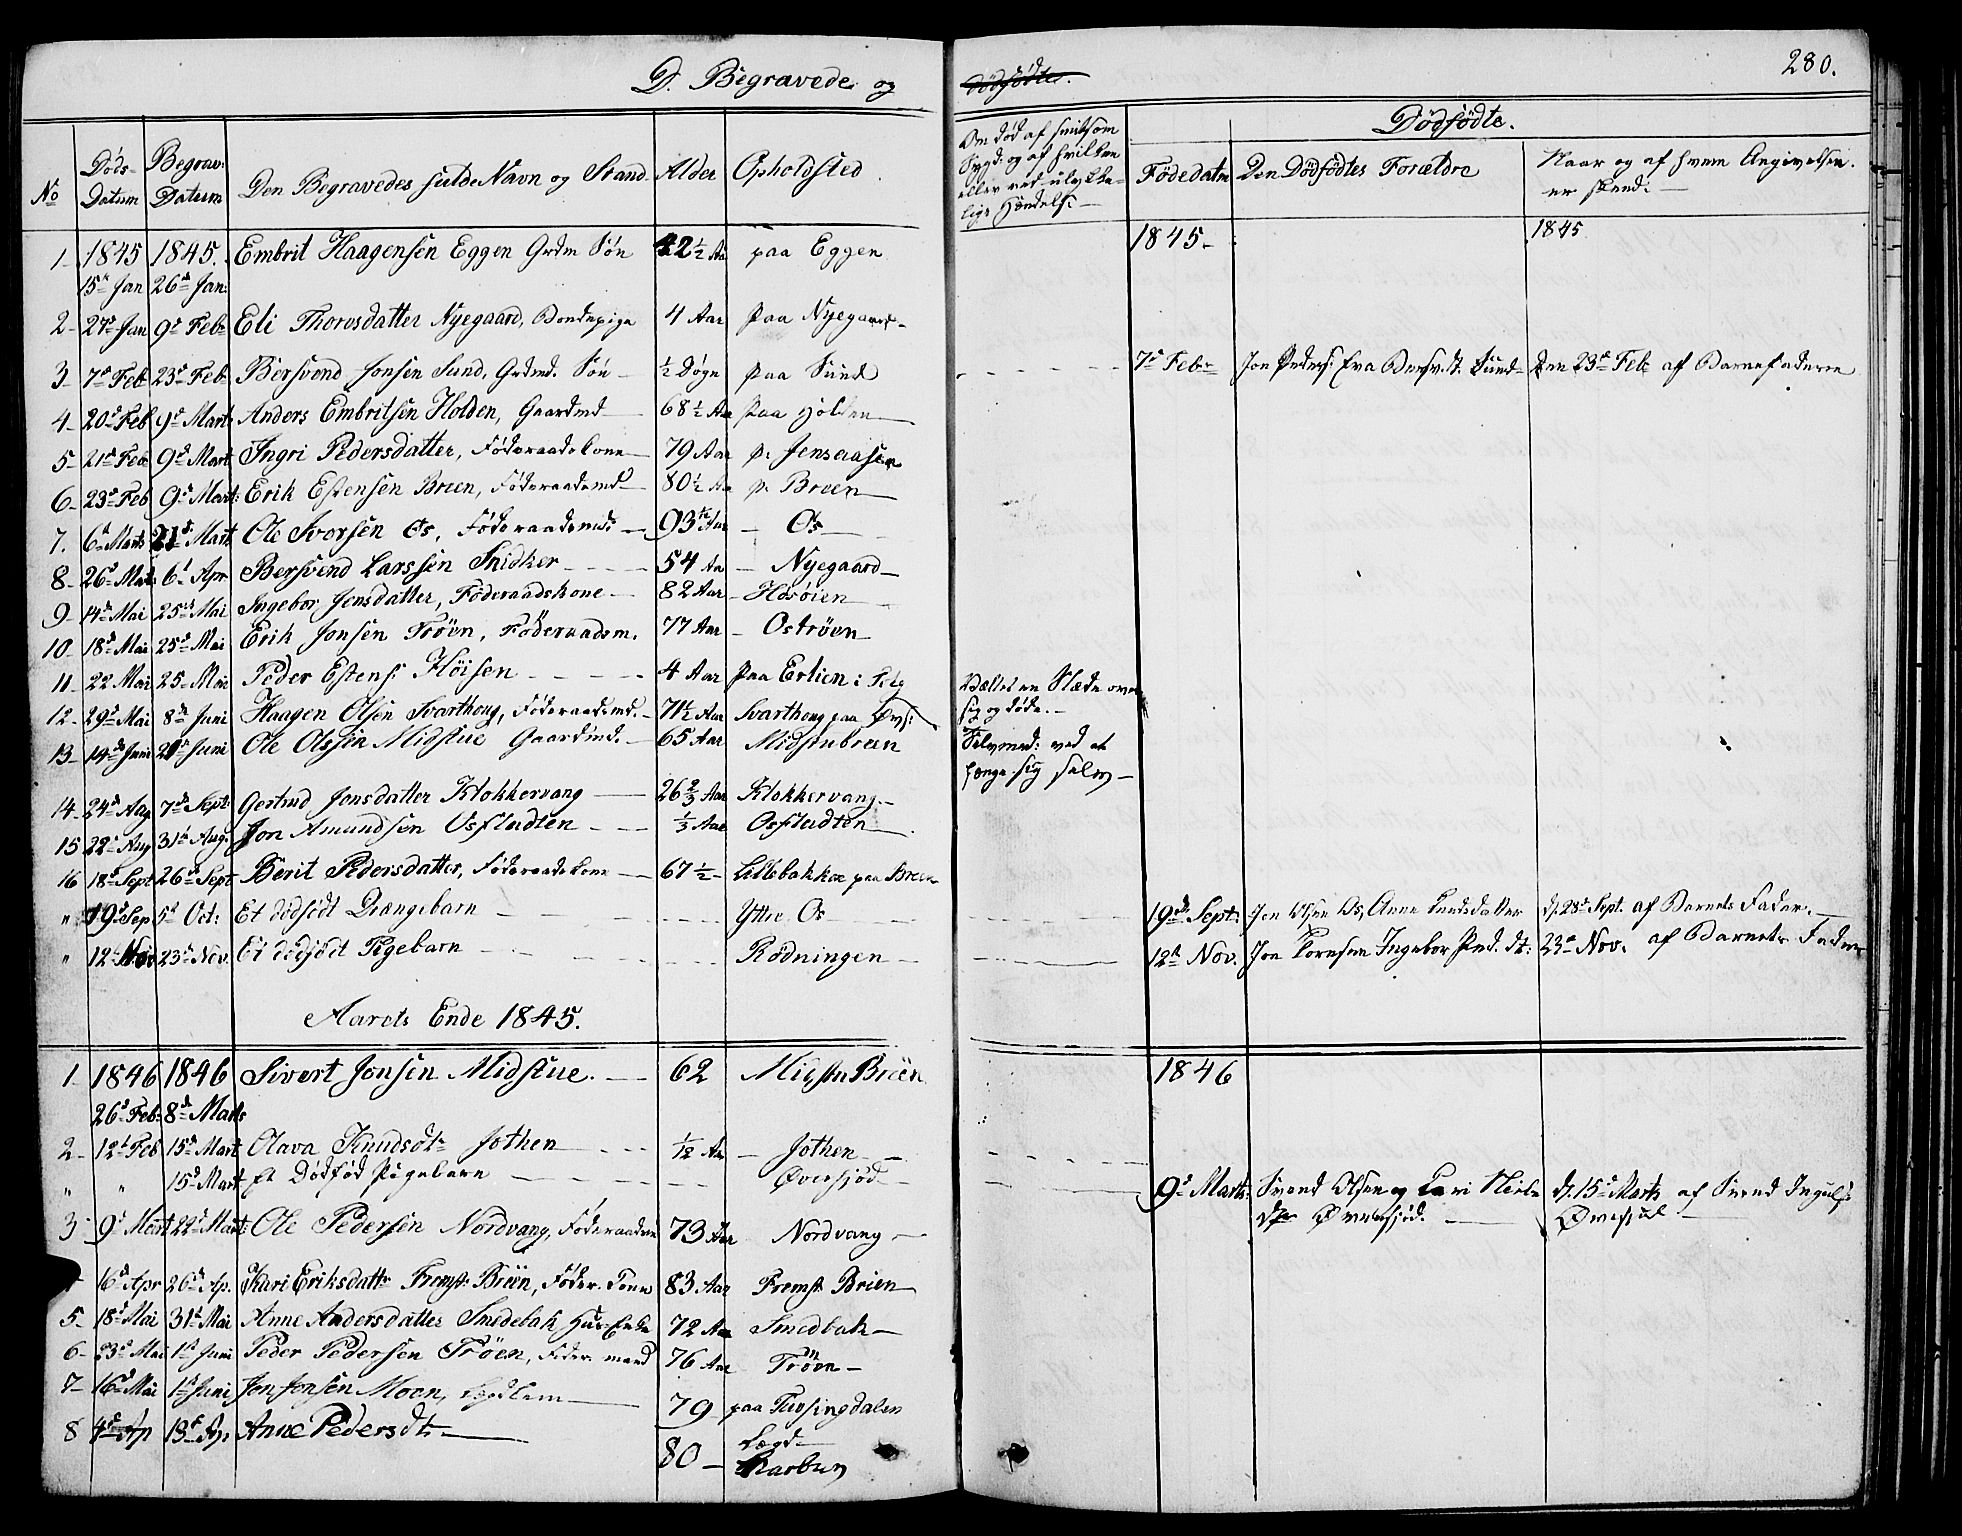 D. Begravede og
Dødfødte.
280.
No
Døds-Datum
Begrav: Datum
Den Begravedes fulde Navn og Stand
Alder
Opholdsted
Om død af smitsom Sygd: og af hvilken eller ved ulykkelige Hændelse
Dødfødte.
Fødedatm
Den Dødfødtes Forældre
Naar og af hvem Angivelsen er skeed:
1845 1845. 1845 1845
1 15de Jan 26de Jan: Embrit Haagensen Eggen Grdm Søn 42½ Aar paa Eggen
2 27de Jan 9de Feb Eli Thorosdatter Nyegaard, Bondepige 4 Aar paa Nyegaard
3 7de Feb 23de Feb Bersvend Jonsen Sund, Grdmd. Søn ½ Døgn paa Sund 7de Febr Jon Peders: Eva Bersv.dt. Sund Den 23de Feb af Barnefaderen
4 20de Feb 9de Mart: Anders Embritsen Holden, Gaardmd 68½ Aar paa Holden
5 21de Feb 9de Mart Ingri Pedersdatter, Føderaadskone 79 Aar p. Jensaasen
6 23de Feb 9de Mart: Erik Estensen Brien, Føderaadsmd 80½ Aar p. Breen
7. 6de Marts 21de Mart Ole Ivorsen Os, Føderaadsmd: 93 Aar Os
8 26de Mart 6te Apr Bersvend Larssen Snidker 54 Aar Nyegaard
9 14de Mai 25de Mai Ingebor Jensdatter, Føderaadskone 82 Aar Hosøien
10 18de Mai 25de Mai Erik Jonsen Trøen, Føderaadsm. 77 Aar Ostrøen
11 22 Mai 25 Mai Peder Estens: Høisen 4 Aar paa Erlien i Tolg Væltet en Slæde over sig og døde.
12 29de Mai 8de Juni Haagen Olsen Svarthoug, Føderaadsmd. 71½ Aar Svarthoug paa Øvs:
13 14de Juni 21de Juni Ole Olssen Midstue Gaardmd. 65 Aar Midstubreen Selvmord: ved at hænge sig selv
14 24de Aug 7de Sept: Gertrud Jonsdatter Klokkervang 26⅔ Aar Klokkervang
15 22de Aug 31te Aug: Jon Amundsen Osfludten ⅓ Aar Osfludten
16 18de Sept 26de Sept Berit Pedersdatter, Føderaadskone 67½ Lillebakken paa Breen
" 19de Sep 5te Oct: Et dødfødt Drengebarn Yttre Os 19de Sept: Jon Olsen Os, Anne Knudsdatter d. 28de Sept. af Barnets Fader.
" 12 Nov 23de Nov. Et dødfødt Pigebarn Rødningen 12te Nov. Jon Torresen Ingebor Ped. dt: 23de Nov. af Barnets Fader
Aarets Ende 1845.
1846 1846 1846
1 26de Feb: 8de Marts Sivert Jonsen Midstue. 62 Midstu Breen
2 12te Feb 15de Mart Olava Knudsdtr Jothen 1/12 Aar Jothen
" " 15de Mart Et Dødfød Pigebarn Øversjød 9de Marts: Svend Olsen og Kari Øversjød. d. 15de Marts af Svend Inguls:
3 9de Mart 22de Mart: Ole Pedersen Nordvang, Føderaadsm 73 Aar Nordvang
16de Apr 26de Ap. Kari Eriksdattr Fremst: Breen, Føder. Kone 83 Aar Fremst Brien
5 18de Mai 31te Mai Anne Andersdatter Smedebak Hus-Enke 72 Aar Smedbak
6 23de Mai 1te Juni Peder Pedersen Trøen, Føder. mand 76 Aar Trøen
7 16de Mai 1te Juni Jon Jonsen Moen, Lægdlem 79 paa Tufsingdalen Lægd
8 4de Ap 13de Ap. Anne Pedersdt: 80 Narbuv